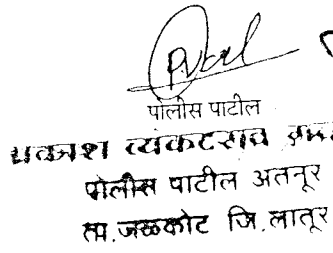 पोलीस पाटील
प्रकाश व्यंकटराव
पोलीस पाटील अतनूर
ता.जळकोट जि.लातूर